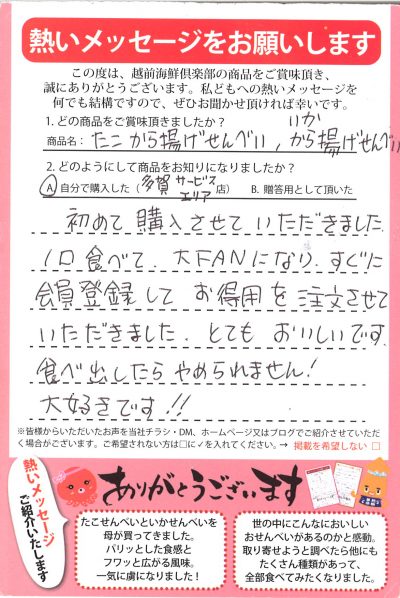 熱いメッセージをお願いします
この度は、越前海鮮倶楽部の商品をご賞味頂き、
誠にありがとうございます。私どもへの熱いメッセージを
何でも結構ですので、ぜひお聞かせ頂ければ幸いです。
1. どの商品をご賞味頂きましたか？
商品名： たこから揚げせんべい、いかから揚げせんべい
2. どのようにして商品をお知りになりましたか？
A. 自分で購入した（多賀サービスエリア店） B. 贈答用として頂いた
初めて購入させていただきました。
1口食べて大FANになり、すぐに
会員登録してお得用を注文させて
いただきました。とてもおいしいです。
食べ出したらやめられません！
大好きです！！
※皆様からいただいたお声を当社チラシ・DM、ホームページ又はブログでご紹介させていただ
く場合がございます。ご希望されない方は□に✓を入れてください。→ 掲載を希望しない □
熱いメッセージ
ご紹介いたします
ありがとうございます
たこせんべいといかせんべいを
母が買ってきました。
パリッとした食感と
フワッと広がる風味。
一気に虜になりました！
世の中にこんなにおいしい
おせんべいがあるのかと感動。
取り寄せようと調べたら他にも
たくさん種類があって、
全部食べてみたくなりました。